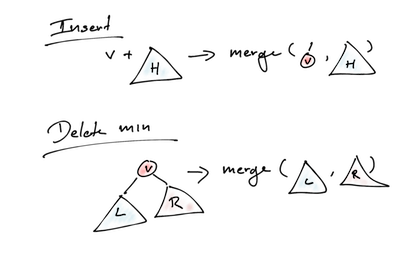 Insert
v + H → merge ( v , H )
Delete min
v → merge ( L , R )
L R